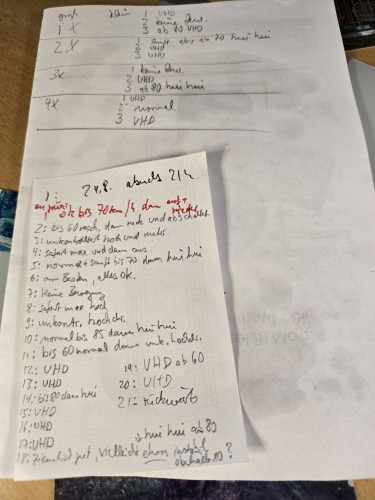 groß klein 1 VHD
1 X 2 keine Bew.
3 ab 80 VHD
2 X 1 sanft aber ab 70 hui hui
2 VHD
3 VHD
3x 1 keine Bew.
2 VHD
3 ab 80 hui hui
4X 1 VHD
2 normal
3 VHD
1: 24.8. abends 21 h
ok bis 70 km/h dann
2: bis 60 rasch, dann nicht und abschaltet
3: unkontrolliert hoch und mehr
4: sofort max und dann aus
5: normal + sanft bis 70 dann hui hui
6: am Besten, alles ok.
7: keine Bewegung
8: sofort max hoch
9: unkontr. hochdr.
10: normal bis 85 dann hui hui
11: bis 60 normal dann unk. hochdr.
12: VHD 19: VHD ab 60
13: VHD 20: VHD
14: bis 80 dann hui 21: rückwärts
15: VHD
16: VHD
17: VHD hui hui ab 89
18: Ziemlich gut, vielleicht etwas